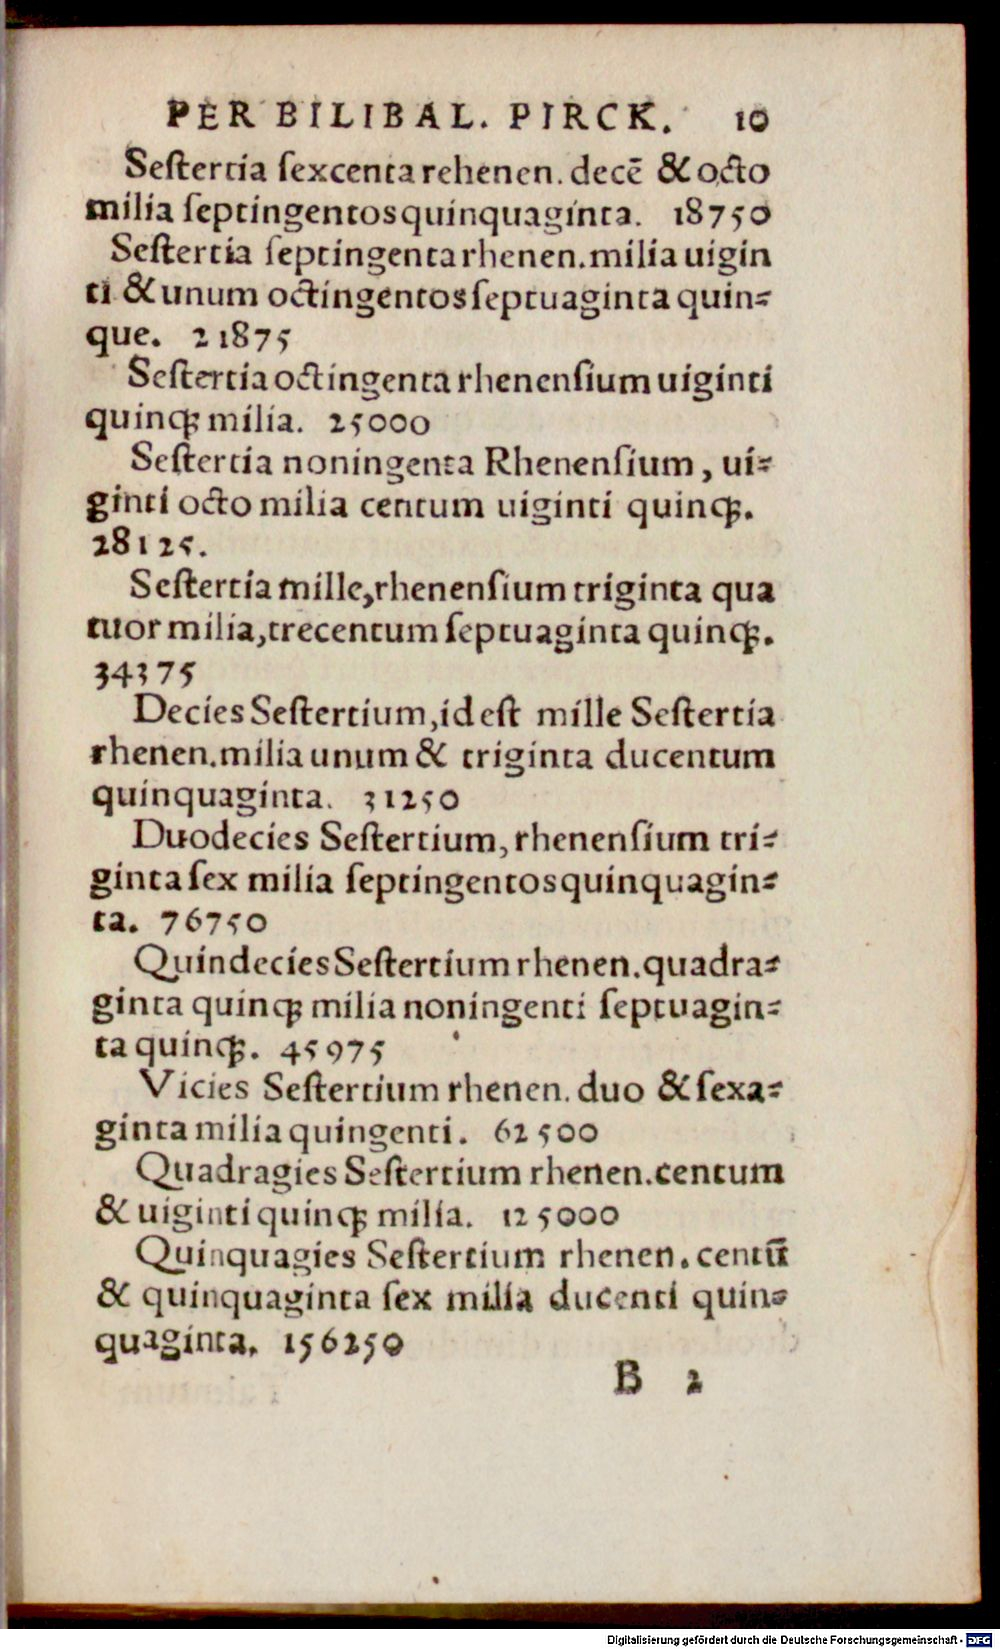 PER BILIBAL. PIRCK. 10
Seſtertia ſexcenta rehenen. decē & octo
milia ſeptingentos quinquaginta. 18750
Seſtertia ſeptingenta rhenen. milia uigin
ti & unum octingentos ſeptuaginta quin⸗
que. 21875
Seſtertia octingenta rhenenſium uiginti
quinqꝫ milia. 25000
Seſtertia noningenta Rhenenſium, ui⸗
ginti octo milia centum uiginti quinqꝫ.
28125.
Seſtertia mille, rhenenſium triginta qua
tuor milia, trecentum ſeptuaginta quinqꝫ.
34375
Decies Seſtertium, id eſt mille Seſtertia
rhenen. milia unum & triginta ducentum
quinquaginta. 31250
Duodecies Seſtertium, rhenenſium tri⸗
ginta ſex milia ſeptingentos quinquagin⸗
ta. 76750
Quindecies Seſtertium rhenen. quadra⸗
ginta quinqꝫ milia noningenti ſeptuagin⸗
ta quinqꝫ. 45975
Vicies Seſtertium rhenen. duo & ſexa⸗
ginta milia quingenti. 62500
Quadragies Seſtertium rhenen. centum
& uiginti quinqꝫ milia. 125000
Quinquagies Seſtertium rhenen. centū
& quinquaginta ſex milia ducenti quin⸗
quaginta. 156250
B 2
Digitalisierung gefördert durch die Deutsche Forschungsgemeinschaft - DFG